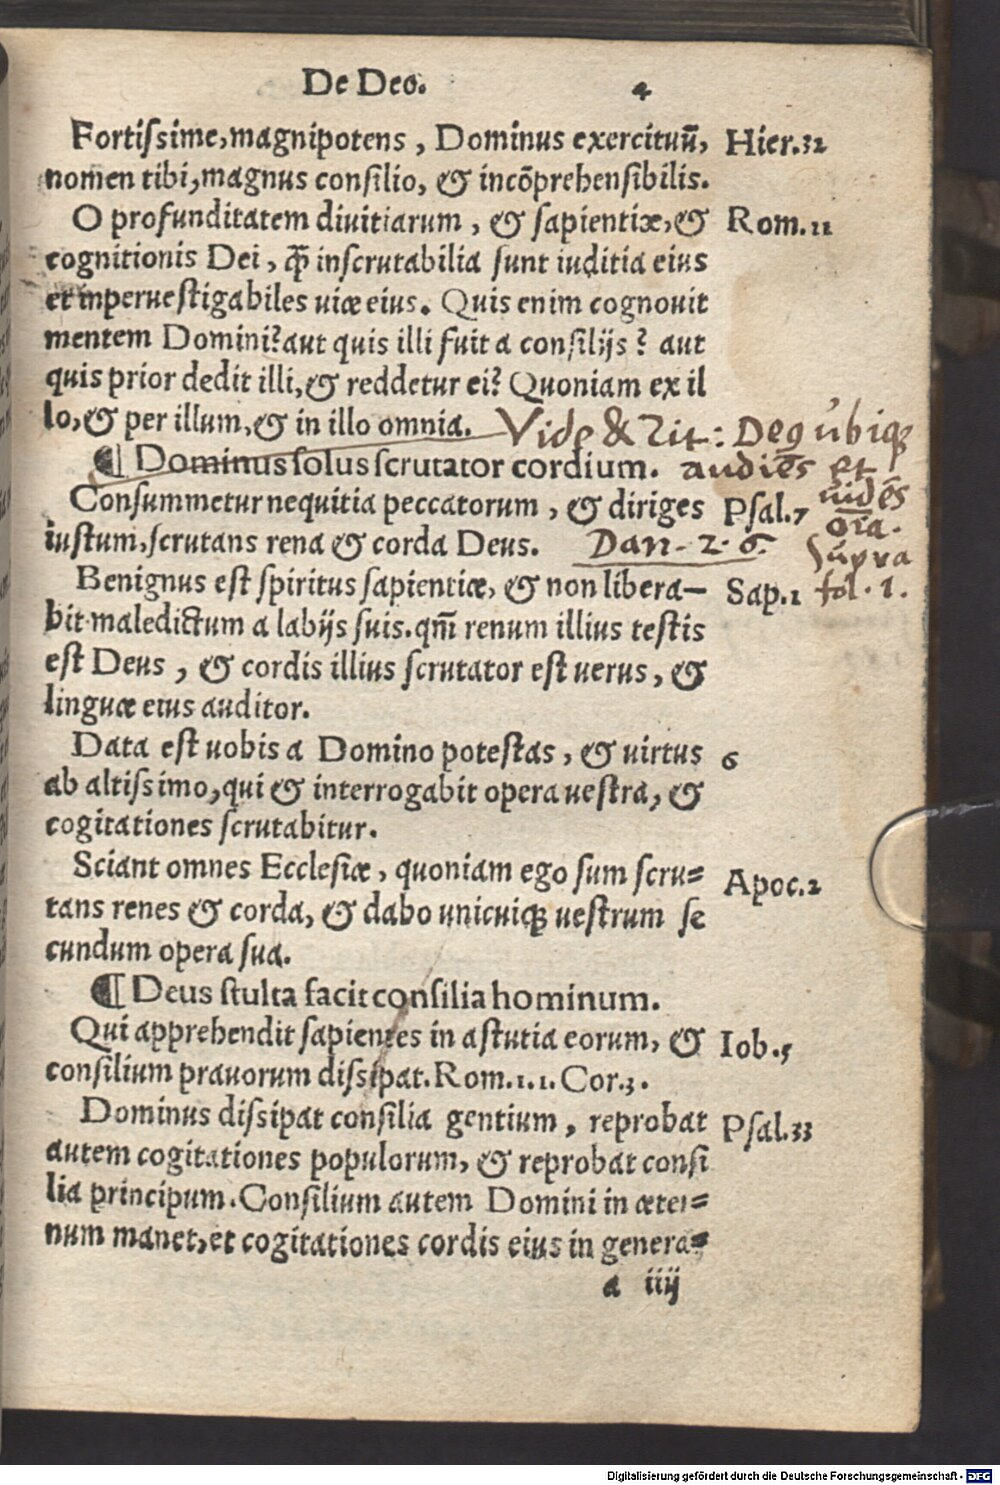 De Deo. 4
Fortissime, magnipotens, Dominus exercituū, Hier.32
nomen tibi, magnus consilio, & incōprehensibilis.
O profunditatem divitiarum, & sapientiæ, & Rom.11
cognitionis Dei, q̃ inscrutabilia sunt iuditia eius
et inpervestigabiles uiæ eius. Quis enim cognovit
mentem Domini? aut quis illi fuit a consilijs? aut
quis prior dedit illi, & reddetur ei? Quoniam ex il
lo, & per illum, & in illo omnia. Vide & Tit: Deq ubiqꝫ
¶ Dominus solus scrutator cordium. audiēs et
uidēs
Consummetur nequitia peccatorum, & diriges Psal.7 oīa.
iustum, scrutans rena & corda Deus. Dan. 2. 6. supra
Benignus est spiritus sapientiæ, & non libera- Sap.1 fol. 1.
bit maledictum a labijs suis. qm̄ renum illius testis
est Deus, & cordis illius scrutator est uerus, &
linguæ eius auditor.
Data est uobis a Domino potestas, & uirtus 6
ab altissimo, qui & interrogabit opera uestra, &
cogitationes scrutabitur.
Sciant omnes Ecclesiæ, quoniam ego sum scru= Apoc.2
tans renes & corda, & dabo unicuiqꝫ uestrum se
cundum opera sua.
¶ Deus stulta facit consilia hominum.
Qui apprehendit sapientes in astutia eorum, & Iob.5
consilium pravorum dissipat. Rom.1.1.Cor.3.
Dominus dissipat consilia gentium, reprobat Psal.33
autem cogitationes populorum, & reprobat consi
lia principum. Consilium autem Domini in æter=
num manet, et cogitationes cordis eius in genera=
a iiij
Digitalisierung gefördert durch die Deutsche Forschungsgemeinschaft - DFG